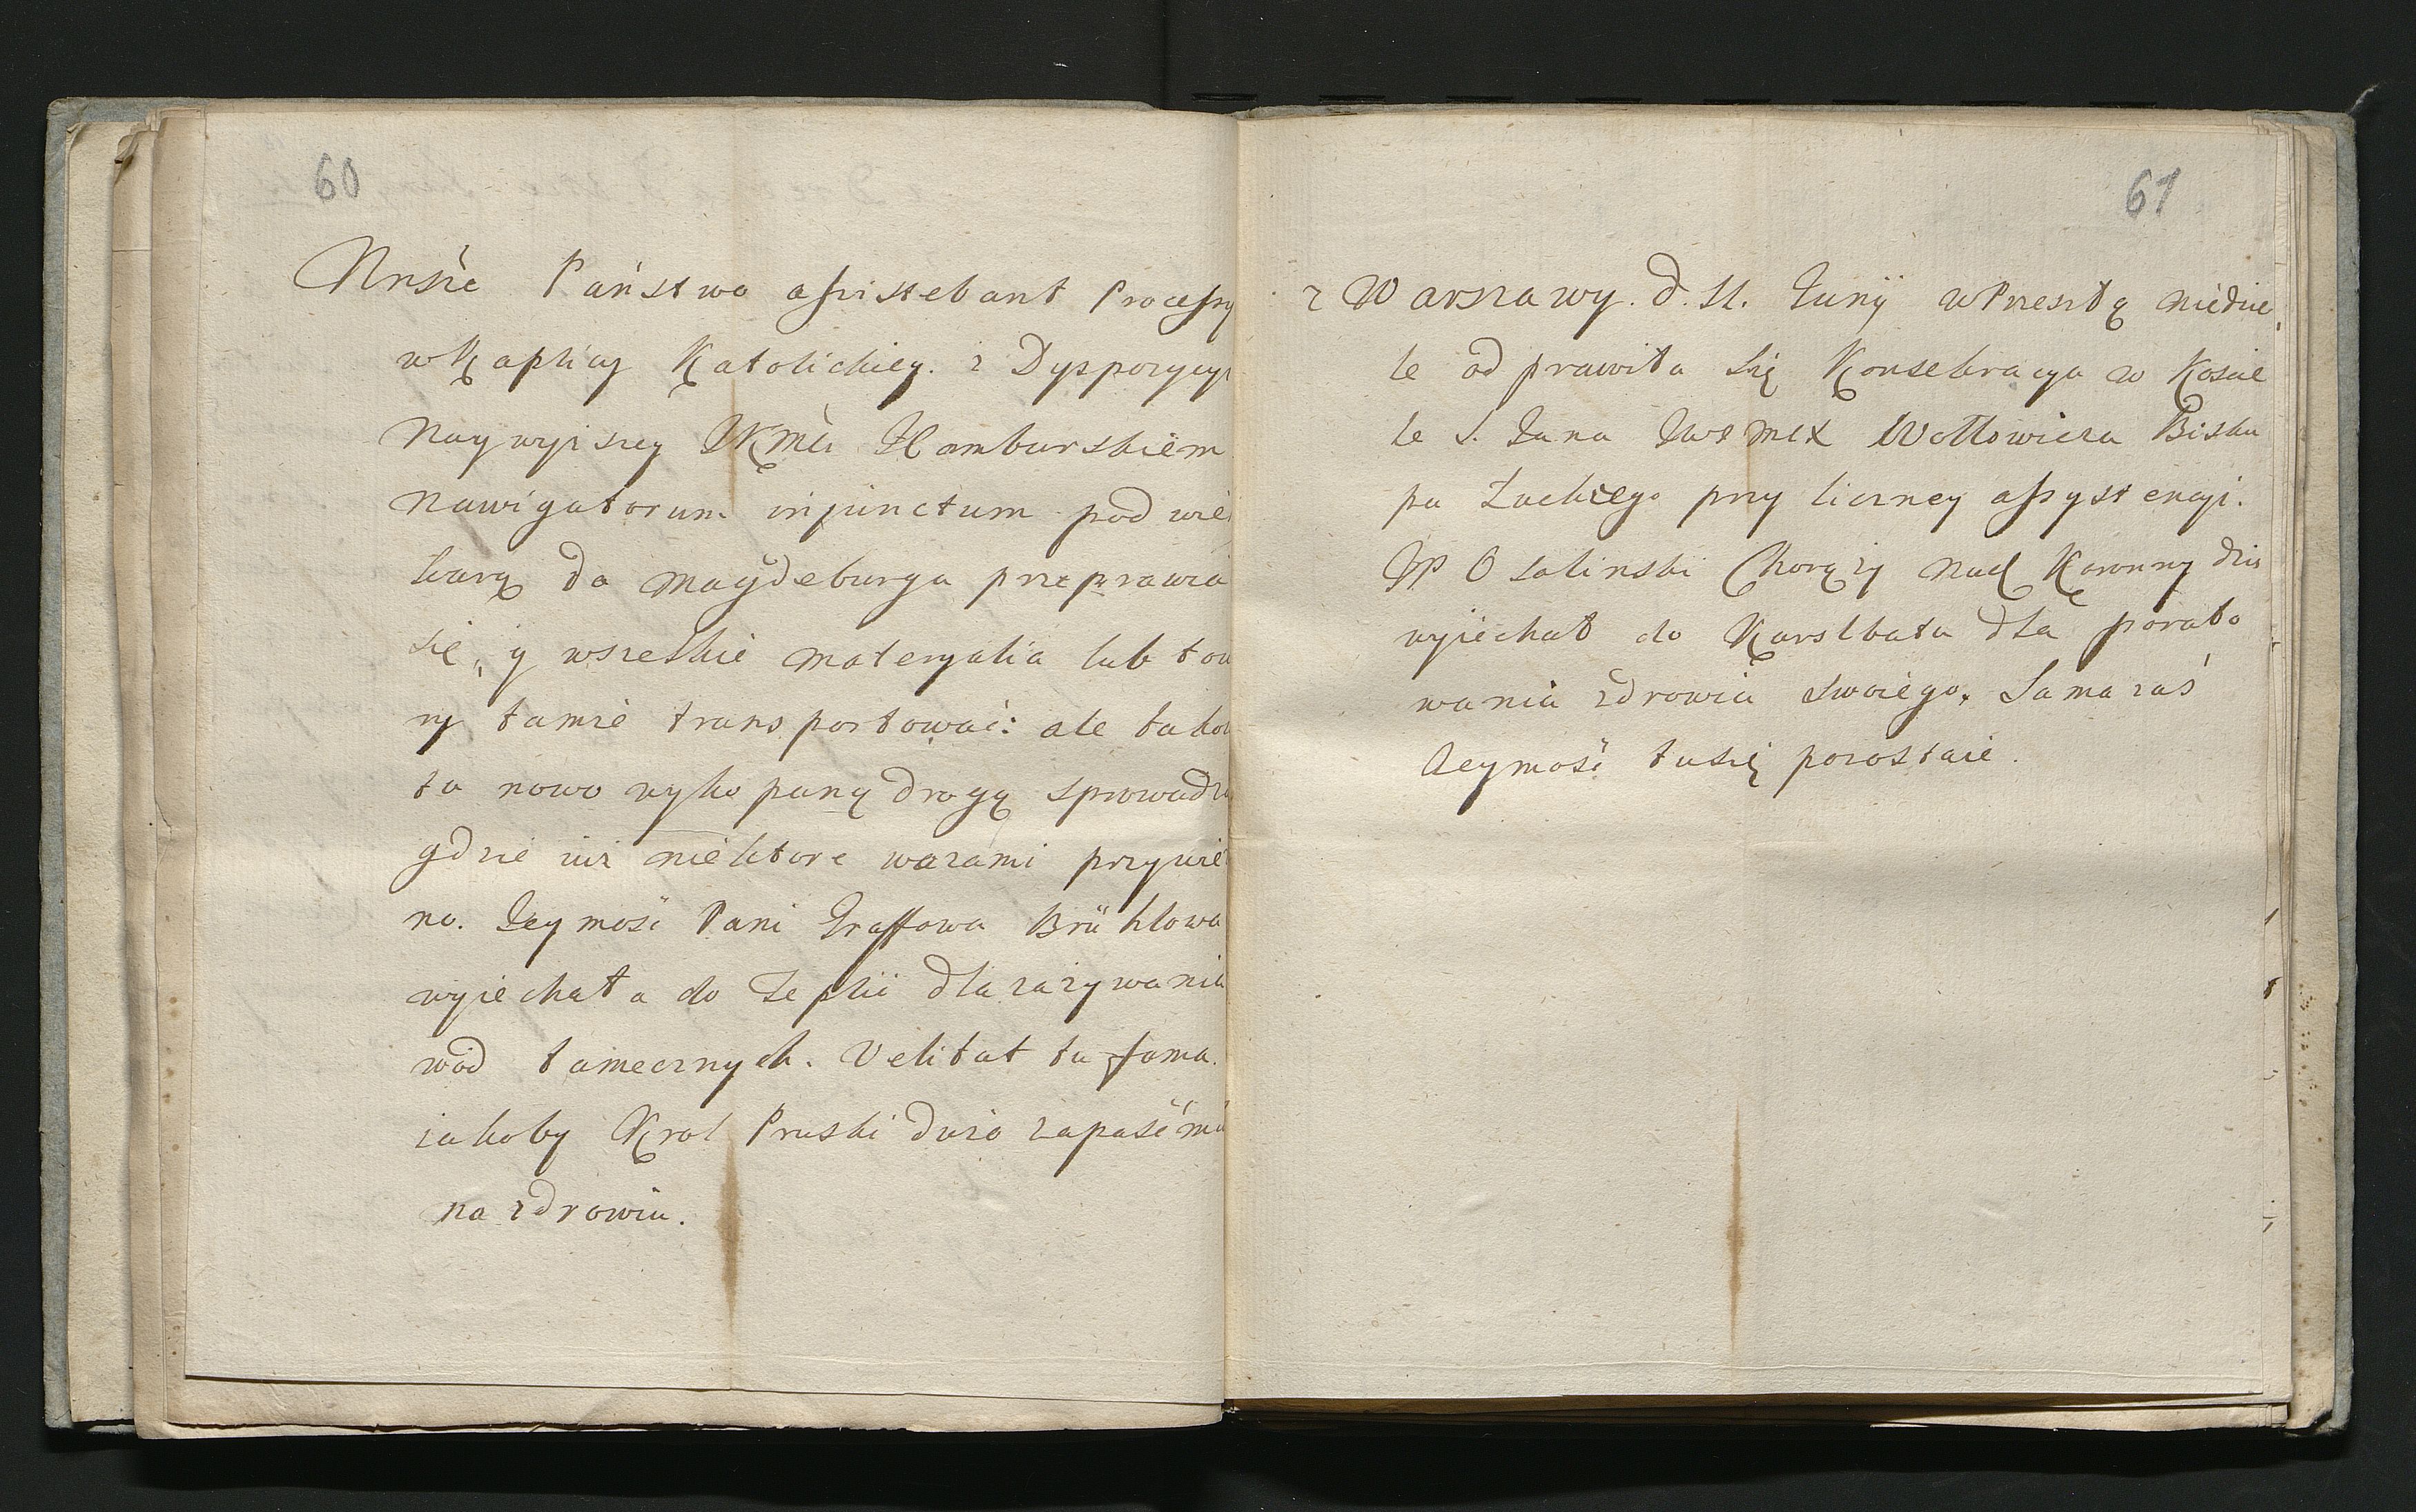 60
Państwo assistebant Processy
w Kaplicy Katolickiey. z Dyspozycyi
Naywyższey JKMci Hamburskiem
Nawigatorum injunctum pod wie
karą do Magdeburga przeprawia
się, y wszelkie materyalia lub tow
ry tamże transportować: ale tako
ta nowo wykopaną drogą sprowadza
gdzie iuż niektore wazami przywie
no. Jeymość Pani Graffowa Brühlowa
wyiechała do Teplic dla zażywania
wód tamecznych. Velitat tu fama
iakoby Krol Pruski dużo zapaść mi
na zdrowiu.
61
z Warszawy. d. 11. Junij w Przeszłą niedzie
le odprawiła się Konsekracya w Kościele
le S. Jana Wołłowicza Bisku
pa Łuckiego przy liczney assystencyi.
JP Osolinski Chorąży Nad Koronny dziś
wyiechał do Karslbatu dla porato
wania zdrowia swoiego, Sama zaś
Jeymość tu się pozostaie.